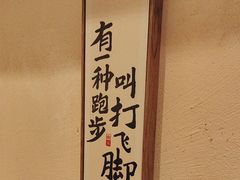 有一种跑步
叫打飞脚